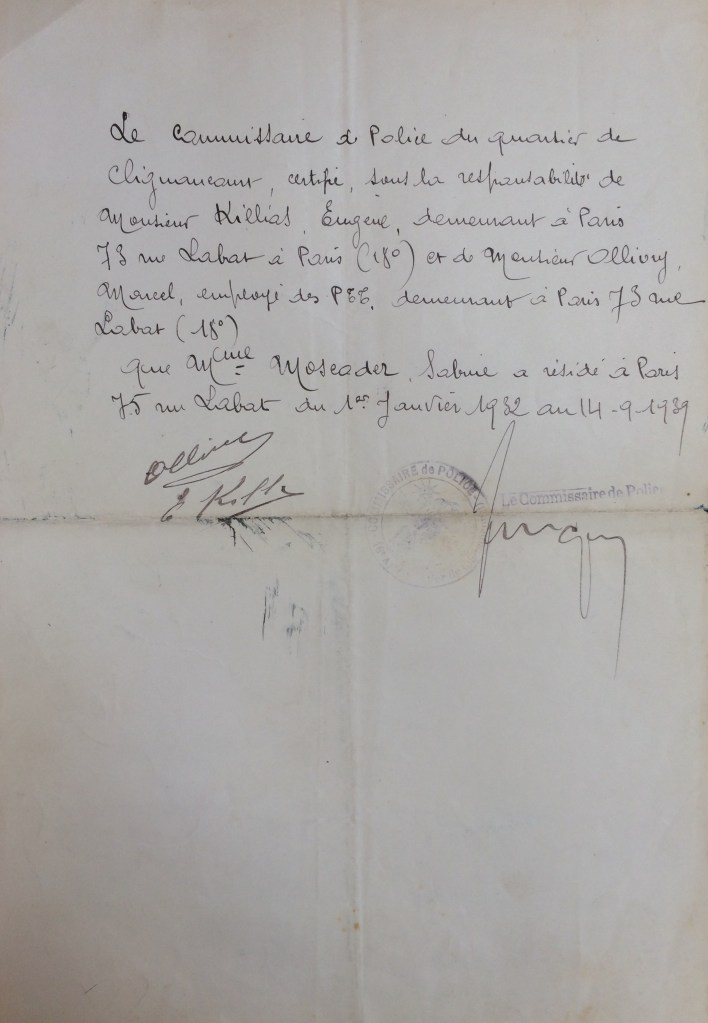 Le Commissaire de Police du quartier de
Clignancourt, certifie, sous la responsabilité de
Monsieur Killias, Eugène, demeurant à Paris
73 rue Labat à Paris (18°) et de Monsieur Ollivry,
Marcel, employé des PTT, demeurant à Paris 73 rue
Labat (18°)
que Mme Moscader, Sabine a résidé à Paris
75 rue Labat du 1er Janvier 1932 au 14-9-1939
Ollivry
E Killi
COMMISSAIRE de POLICE
Le Commissaire de Police